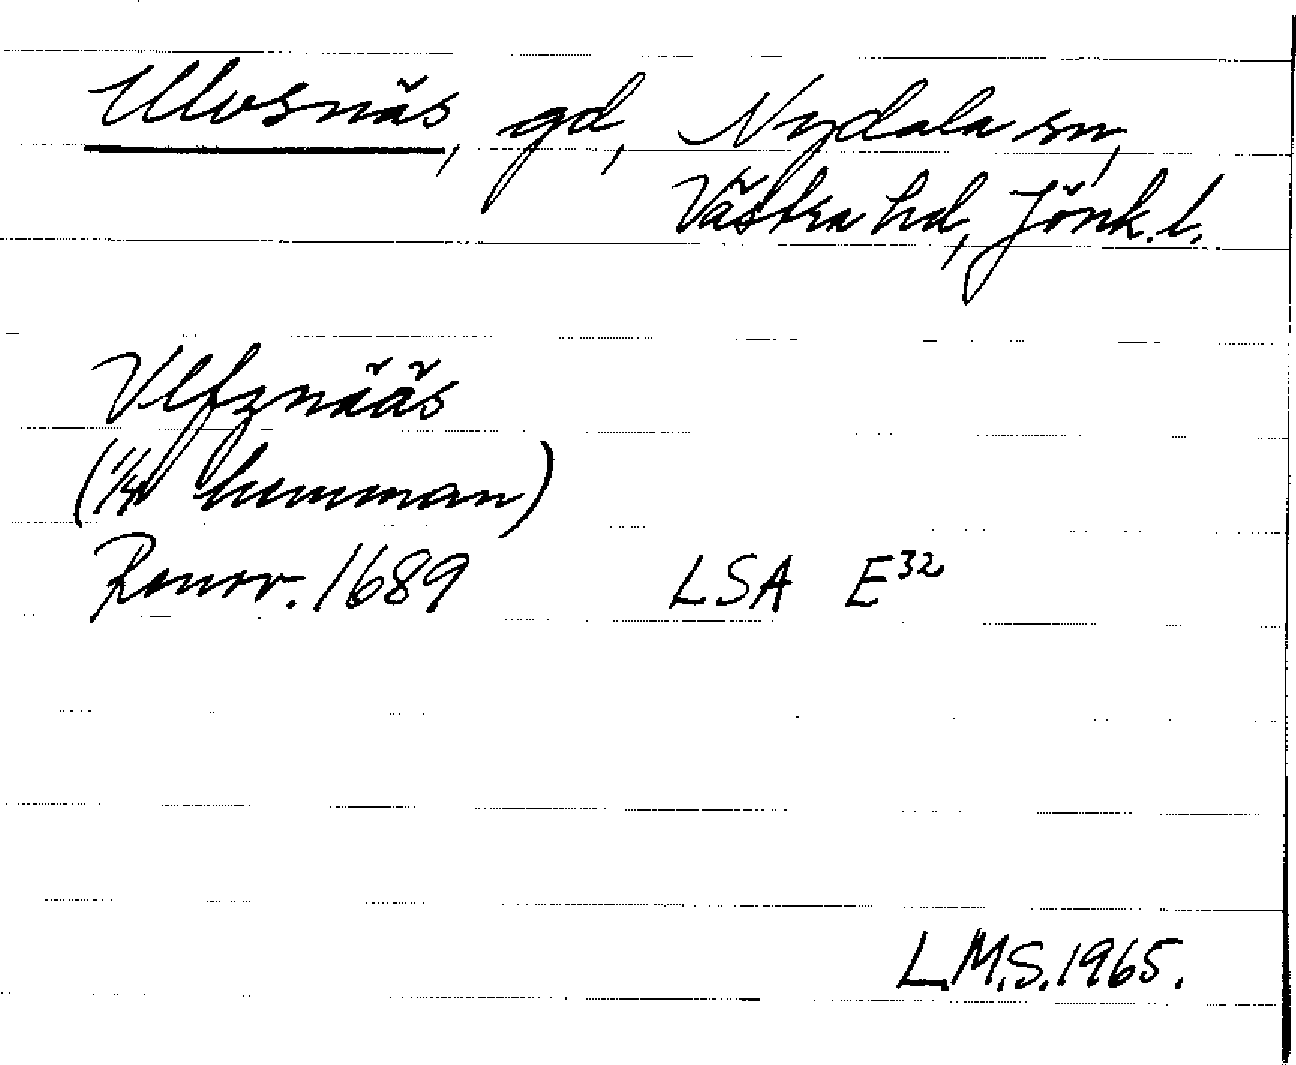 Ulvsnäs, gd, Nydala sn,
Västra hd, Jönk. l.
Vlfznääs
(1/4 hemman)
Renov. 1689 LSA E32
L.M.S. 1965.